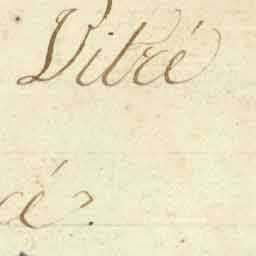 Vitré
cé.